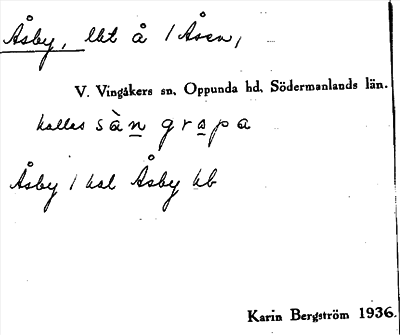 Åsby, lht å 1 Åsen,
V. Vingåkers sn, Oppunda hd, Södermanlands län.
kallas sàn grapa
Åsby 1 hsl Åsby kb
Karin Bergström 1936.